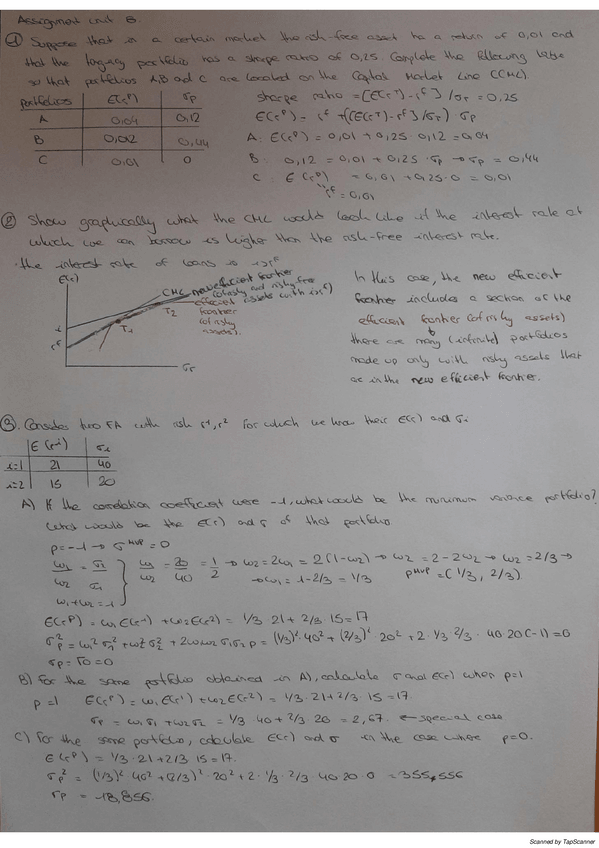 Assignment unit 6.
① Suppose that in a certain market the risk-free asset has a return of 0,01 and
that the tangency portfolio has a sharpe ratio of 0,25. Complete the following table
so that portfolios A, B and C are located on the Capital Market Line (CML).
portfolios E(r^p) σp
A 0,04 0,12
B 0,012 0,44
C 0,01 0
sharpe ratio = [E(r^T) - r^f] / σT = 0,25
E(r^p) = r^f + ([E(r^T) - r^f] / σT) σp
A: E(r^p) = 0,01 + 0,25 · 0,12 = 0,04
B: 0,12 = 0,01 + 0,25 · σp → σp = 0,44
C: E(r^p) = 0,01 + 0,25 · 0 = 0,01
r^f = 0,01
② Show graphically what the CML would look like if the interest rate at
which we can borrow is higher than the risk-free interest rate.
· the interest rate of loans is i > r^f
E(r)
CML new efficient frontier
(of risky and risky-free
assets with i > r^f)
efficient
frontier
(of risky
assets).
T1
T2
i
r^f
σr
In this case, the new efficient
frontier includes a section of the
efficient frontier (of risky assets)
there are many (infinite) portfolios
made up only with risky assets that
are in the new efficient frontier.
③. Consider two FA with risk r^1, r^2 for which we know their E(r) and σi
E(r^i) σi
i=1 21 40
i=2 15 20
A) If the correlation coefficient were -1, what would be the minimum variance portfolio?
What would be the E(r) and σ of that portfolio
ρ = -1 → σ^MVP = 0
w1/w2 = σ2/σ1
w1 + w2 = 1
w1/w2 = 20/40 = 1/2 → w2 = 2w1 = 2(1-w2) → w2 = 2 - 2w2 → w2 = 2/3 →
→ w1 = 1 - 2/3 = 1/3 p^MVP = (1/3, 2/3)
E(r^p) = w1 E(r^1) + w2 E(r^2) = 1/3 · 21 + 2/3 · 15 = 17
σp² = w1² σ1² + w2² σ2² + 2w1w2 σ1σ2 ρ = (1/3)² · 40² + (2/3)² · 20² + 2 · 1/3 · 2/3 · 40 · 20 (-1) = 0
σp = √0 = 0
B) For the same portfolio obtained in A), calculate σ and E(r) when ρ=1
ρ = 1 E(r^p) = w1 E(r^1) + w2 E(r^2) = 1/3 · 21 + 2/3 · 15 = 17.
σp = w1 σ1 + w2 σ2 = 1/3 · 40 + 2/3 · 20 = 2,67. ← special case
C) For the same portfolio, calculate E(r) and σ in the case where ρ=0.
E(r^p) = 1/3 · 21 + 2/3 · 15 = 17.
σp² = (1/3)² · 40² + (2/3)² · 20² + 2 · 1/3 · 2/3 · 40 · 20 · 0 = 355,556
σp = 18,856.
Scanned by TapScanner